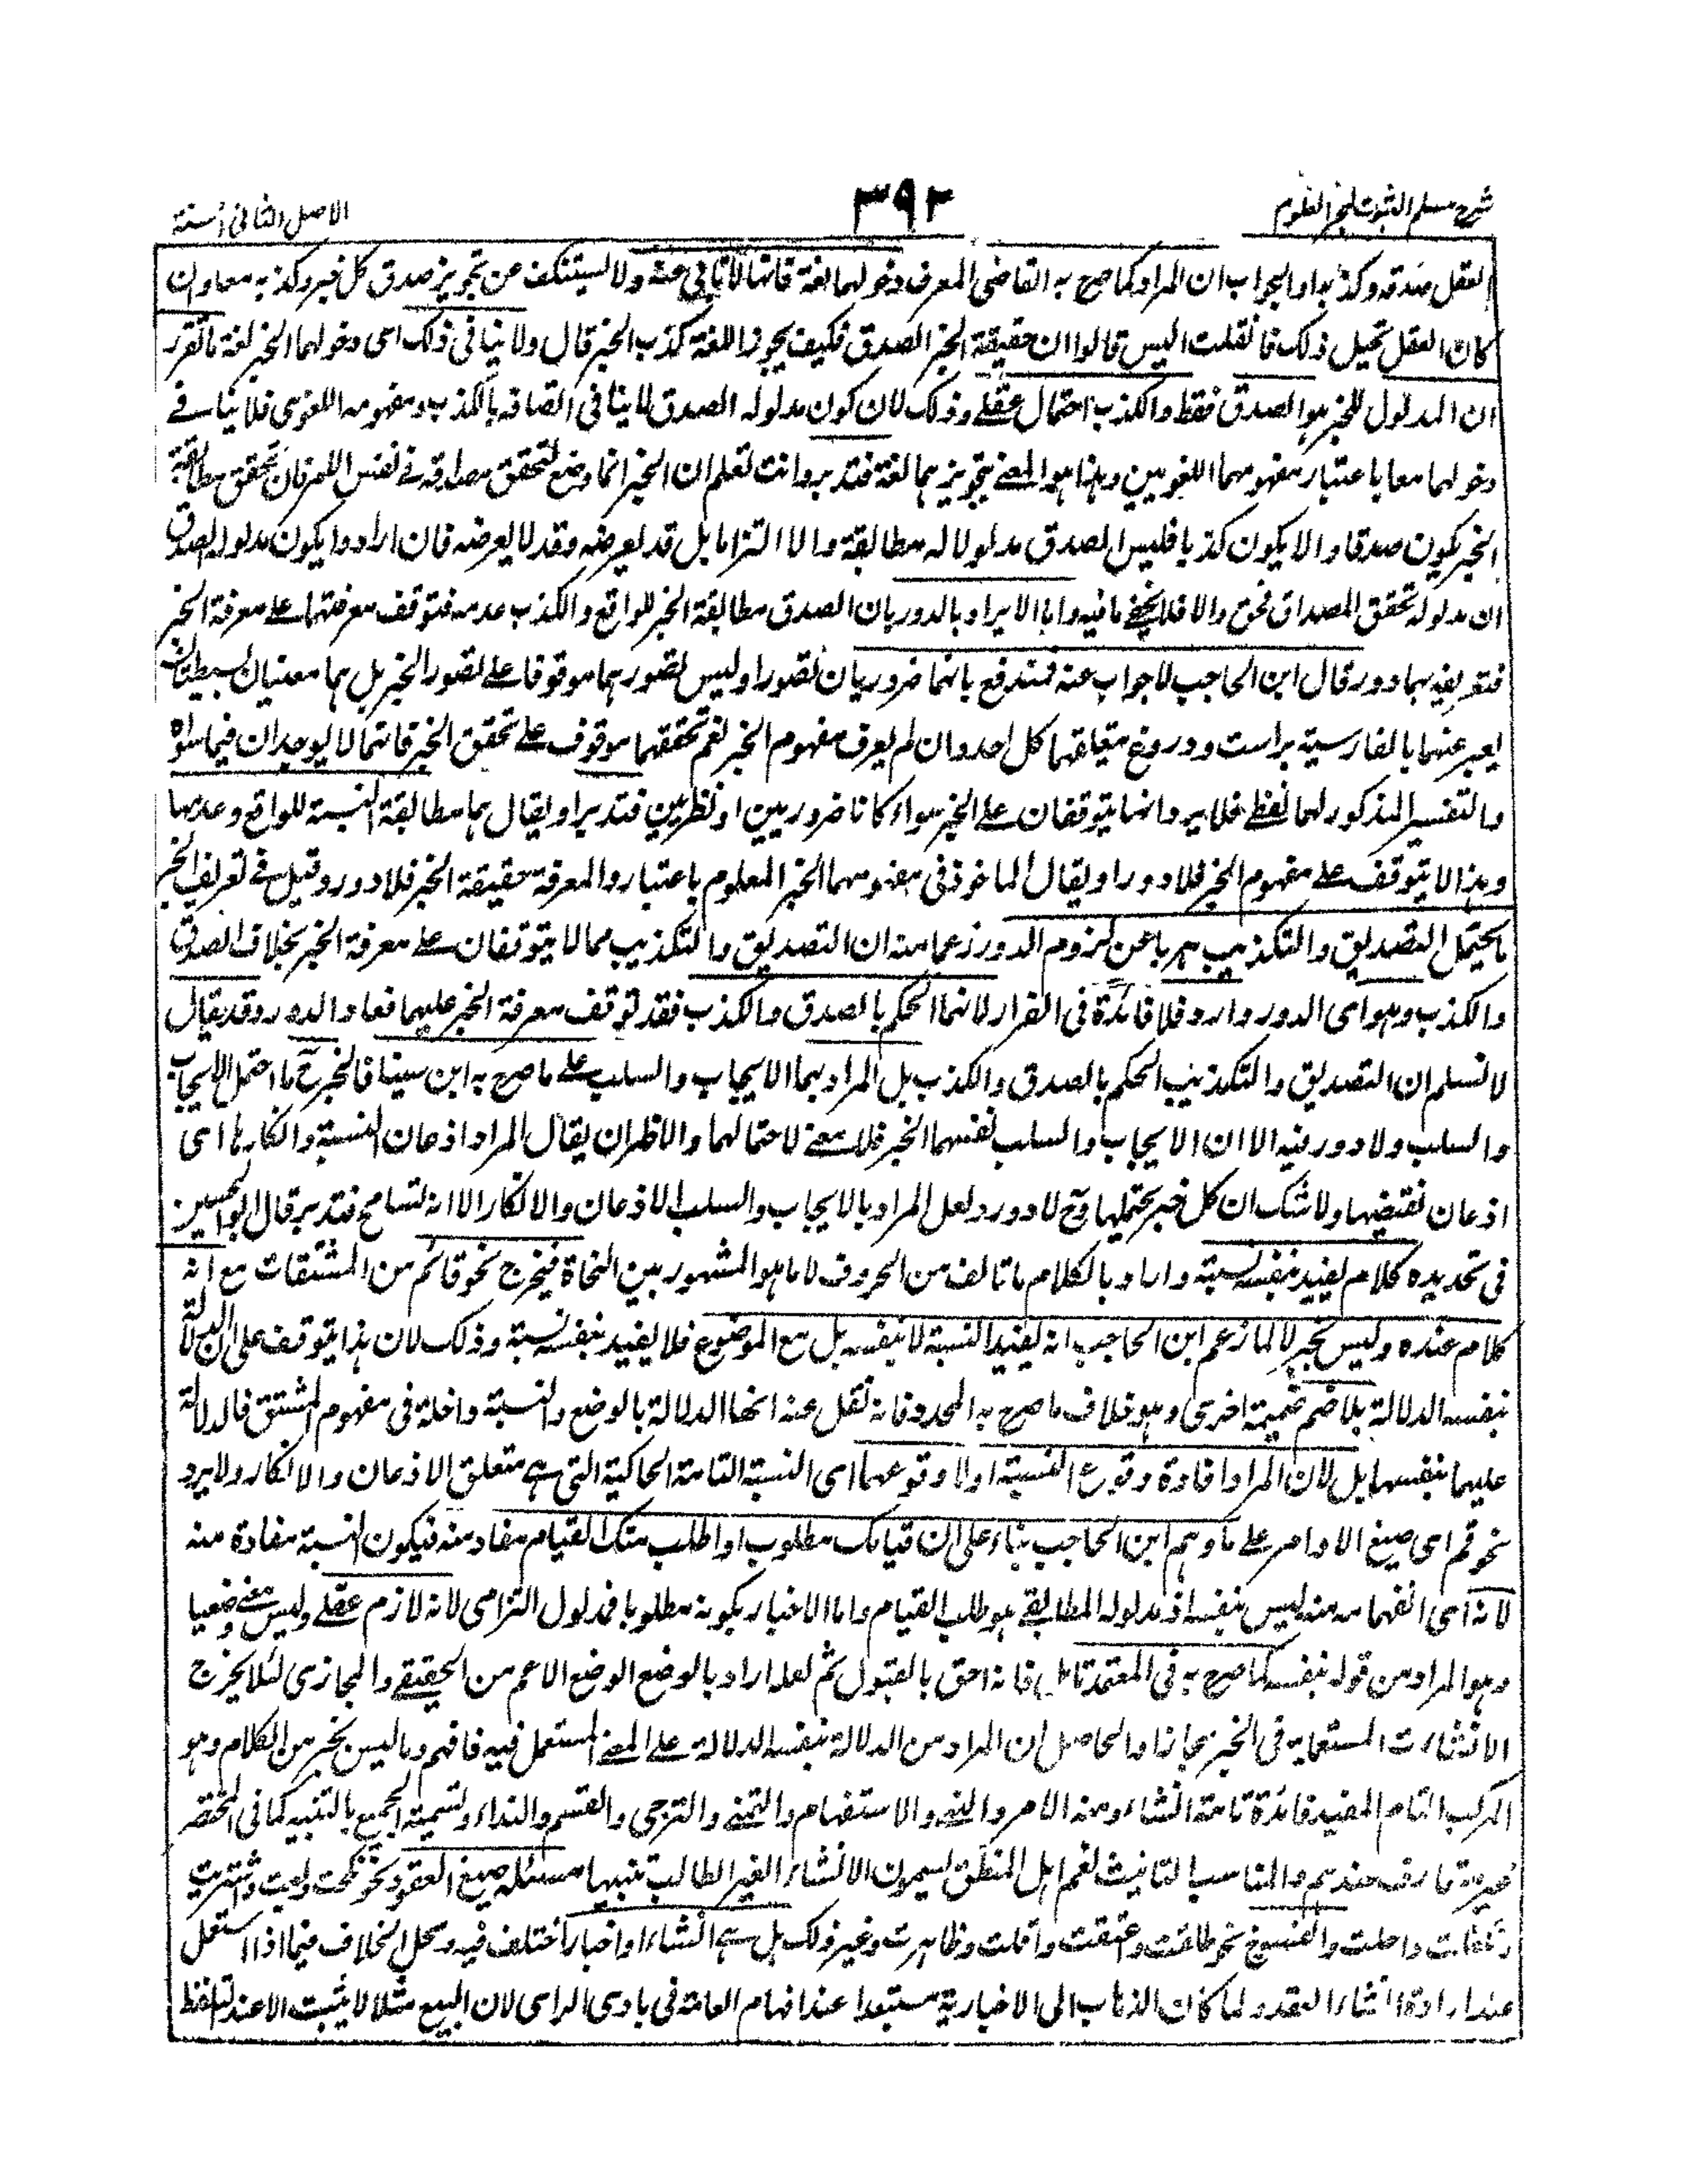 شرح مسلم الثبوت لبحر العلوم
۳۹۲
الاصل الثانی السنة
العقل صدقه وكذبه والجواب ان المراد كما صرح به القاضی المعرف دخولهما لغة فانها لا تابی عنه ولا يستنكف عن تجويز صدق كل خبر وكذبه معا وان
كان العقل يحيل ذلك فان قلت اليس قالوا ان حقيقة الخبر الصدق فكيف يجوز اللغة كذب الخبر قال ولا ينافی ذلك ای دخولهما الخبر لغة ما تقرر
ان المدلول للخبر هو الصدق فقط والكذب احتمال عقلے وذلك لان كون مدلوله الصدق لا ينافی اتصافه بالكذب ومفهومه اللغوی فلا ينافے
دخولهما معا باعتبار مفهومهما اللغويين وهذا هو المعنے بتجويزهما لغة فتدبر وانت تعلم ان الخبر انما وضع لتحقق مصداقه فے نفس الامر فان تحقق مطابقة
الخبر يكون صدقا والا يكون كذبا فليس الصدق مدلولا له مطابقة ولا التزاما بل قد يعرضه وقد لا يعرضه فان ارادوا بكون مدلوله الصدق
ان مدلوله تحقق المصداق فحق والا فلا يخفے ما فيه واما الايراد بالدور بان الصدق مطابقة الخبر للواقع والكذب عدمه فتوقف معرفتهما علے معرفة الخبر
فتعريفه بهما دور قال ابن الحاجب لا جواب عنه فمندفع بانهما ضروريان تصورا وليس تصورهما موقوفا علے تصور الخبر بل هما معنيان بسيطان
يعبر عنهما بالفارسية براست ودروغ يتعلقهما كل احد وان لم يعرف مفهوم الخبر نعم تحققهما موقوف علے تحقق الخبر فانهما لا يوجدان فيما سواه
والتفسير المذكور لهما لفظے فلا يرد انهما يتوقفان علے الخبر سواء كانا ضروريين او نظريين فتدبر او يقال هما مطابقة النسبة للواقع وعدمها
وهذا لا يتوقف علے مفهوم الخبر فلا دور او يقال الماخوذ فی مفهومهما الخبر المعلوم باعتبار والمعرفة حقيقة الخبر فلا دور وقيل فے تعريف الخبر
ما يحتمل التصديق والتكذيب هربا عن لزوم الدور زعما منه ان التصديق والتكذيب مما لا يتوقفان علے معرفة الخبر بخلاف الصدق
والكذب وهو ای الدور وارد فلا فائدة فی الفرار لانهما الحكم بالصدق والكذب فقد توقف معرفة الخبر عليهما فعاد الدور وقد يقال
لا نسلم ان التصديق والتكذيب الحكم بالصدق والكذب بل المراد بهما الايجاب والسلب علے ما صرح به ابن سينا فالخبر ح ما احتمل الايجاب
والسلب ولا دور فيه الا ان الايجاب والسلب نفسهما الخبر فلا معنے لاحتمالهما والاظهر ان يقال المراد اذعان النسبة وانكارها ای
اذعان نقيضها ولا شك ان كل خبر يحتملها وح لا دور ولعل المراد بالايجاب والسلب الاذعان والانكار الا انه تسامح فتدبر قال ابو الحسين
فی تحديده كلام يفيد بنفسه نسبة واراد بالكلام ما تالف من الحروف لا ما هو المشهور بين النحاة فيخرج نحو قائم من المشتقات مع انه
كلام عنده وليس بخبر لا لما زعم ابن الحاجب انه يفيد النسبة لا بنفسه بل مع الموضوع فلا يفيد بنفسه نسبة وذلك لان هذا يتوقف علی ان الدلالة
بنفسه الدلالة بلا ضم ضميمة اخری وهو خلاف ما صرح به المحدد فانه نقل عنه انها الدلالة بالوضع والنسبة داخلة فی مفهوم المشتق فالدلالة
عليها بنفسها بل لان المراد افادة وقوع النسبة او لا وقوعها ای النسبة التامة الحاكية التی هے متعلق الاذعان والانكار ولا يرد
نحو قم ای صيغ الاوامر علے ما وهم ابن الحاجب بناء علی ان قيامك مطلوب او اطلب منك القيام مفاد منه فيكون النسبة مفادة منه
لانه ای انفهامه منه ليس بنفسه اذ مدلوله المطابقے هو طلب القيام واما الاخبار بكونه مطلوبا فمدلول التزامی لانه لازم عقلے وليس معنے وضعيا
وهو المراد من قوله بنفسه كما صرح به فی المعتمد تامل فانه احق بالقبول ثم لعله اراد بالوضع الوضع الاعم من الحقيقے والمجازی لئلا يخرج
الانشاءات المستعملة فی الخبر مجازا والحاصل ان المراد من الدلالة بنفسه الدلالة علے المعنے المستعمل فيه فافهم وما ليس بخبر من الكلام وهو
المركب التام المفيد فائدة تامة انشاء ومنه الامر والنهے والاستفهام والتمنے والترجی والقسم والنداء وتسمية الجميع بالتنبيه كما فی المختصر
غير متعارف عندهم والمناسب التانيث نعم اهل المنطق يسمون الانشاء الغير الطالب تنبيها مسئلة صيغ العقود نحو نكحت وبعت واشتريت
واحلت والفسوخ نحو طلقت وعتقت واقلت وظاهرت وغير ذلك بل هے انشاء او اخبار اختلف فيه ومحل الخلاف فيما اذا استعمل
عند ارادة انشاء العقد ولما كان الذهاب الی الاخبارية مستبعدا عند افهام العامة فی بادی الرای لان البيع مثلا لا يثبت الا عند التلفظ